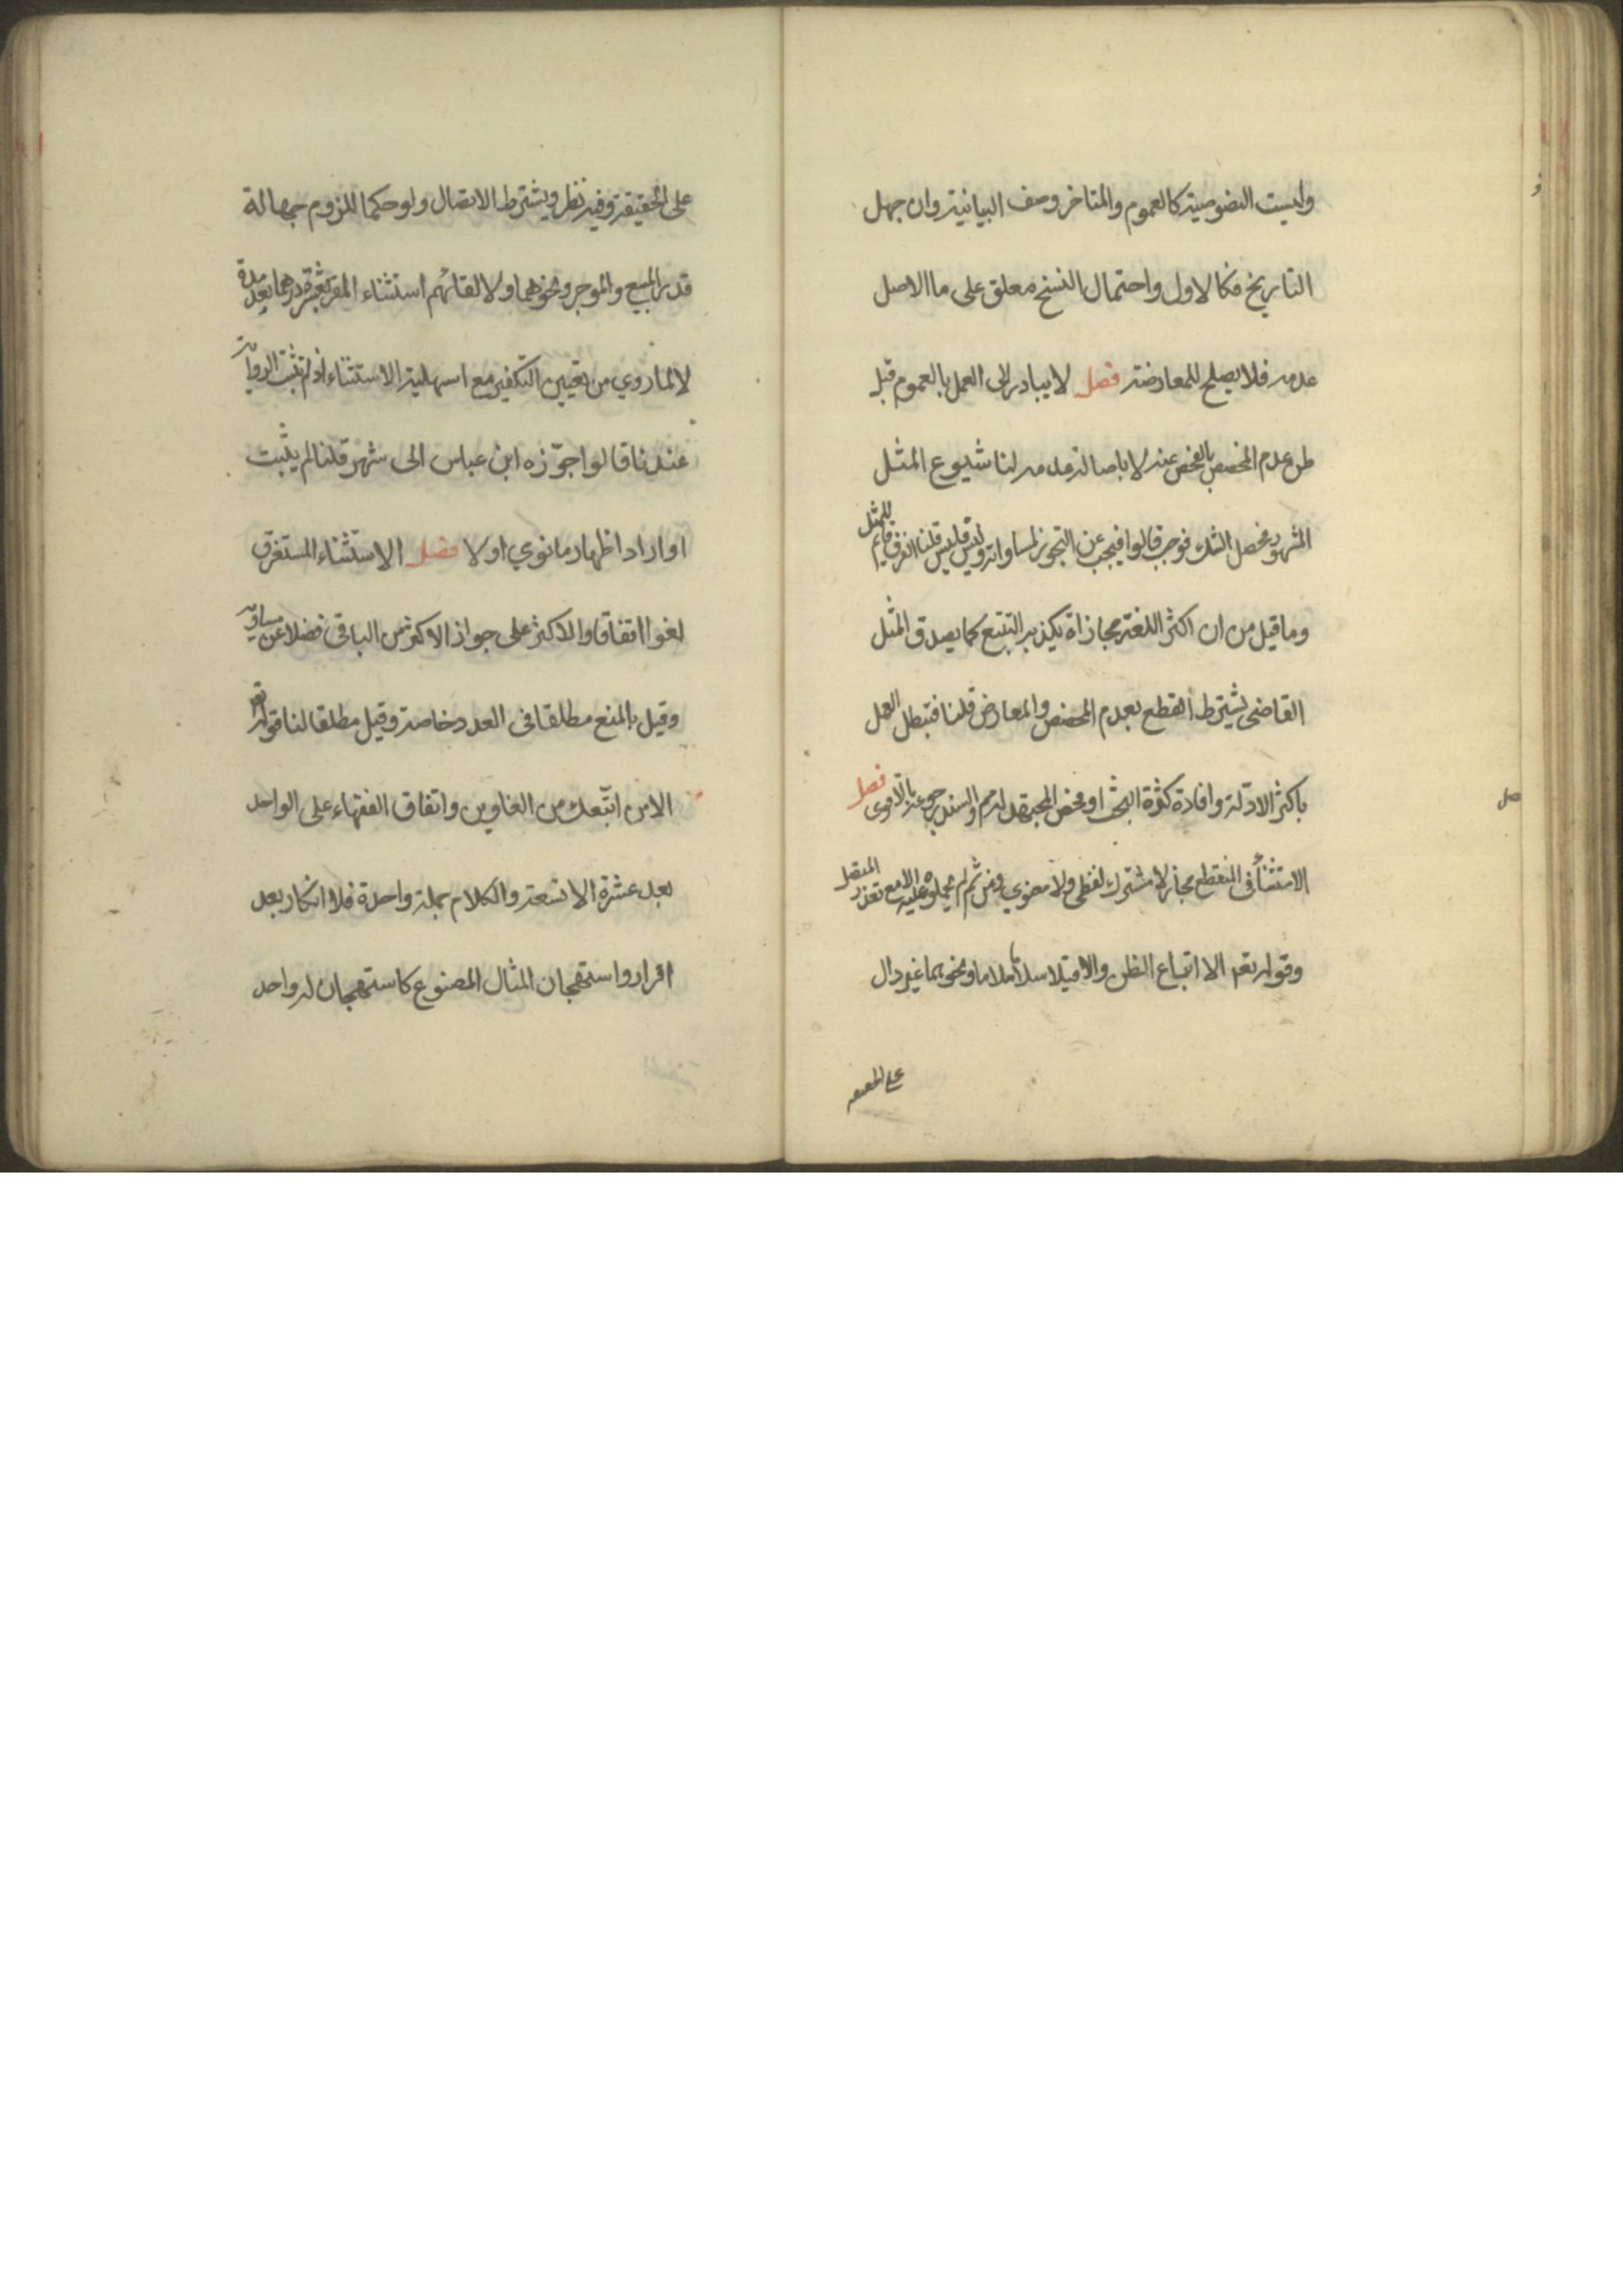 وليست النصوصية كالعموم والمتاخر وصف البيانية وان جهل
التاريخ فكالاول واحتمال النسخ معلق على ما الاصل
عدمه فلا يصلح للمعارضة فصل لا يبادر الى العمل بالعموم قبل
ظن عدم المخصص بالفحص عنه لا باصالة عدمه لنا شيوع المثل
المشهور فحصل الشك فوجب قالوا فيجب عن التجوز لمساواته وليس فليس قلنا الفرق قائم للمثل
وما قيل من ان اكثر اللغة مجازاة يكذبه التتبع كما يصدق المثل
القاضى يشترط القطع بعدم المخصص والمعارض قلنا فتبطل العمل
باكثر الادلة وافادة كثرة البحث او فحص المجتهد له مم والسند رجوعه بالاقوى فصل
الاستثناء فى المنقطع مجاز لا مشترك لفظى ولا معنوي ومن ثم لم يحملوه عليه الا مع تعذر المتصل
وقوله تعه الا اتباع الظن والا قيلا سلاما سلاما ونحوهما غير دال
على الحقيقه
على الحقيقة وفيه نظر ويشترط الاتصال ولو حكما للزوم جهالة
قدر المبيع والموجر ونحوهما ولا لغائهم استثناء المقر بعشرة درهما بعد مدة
لا لما روي من تعيين التكفير مع اسهلية الاستثناء اذ لم تثبت الرواية
عندنا قالوا جوّزه ابن عباس الى شهر قلنا لم يثبت
او اراد اظهار ما نوي اولا فصل الاستثناء المستغرق
لغو اتفاقا والاكثر على جواز الاكثر من الباقى فضلا عن مساويه
وقيل بالمنع مطلقا فى العدد خاصة وقيل مطلقا لنا قوله تعه
الا من اتبعك من الغاوين واتفاق الفقهاء على الواحد
بعد عشرة الا تسعة والكلام جملة واحدة فلا انكار بعد
اقرار واستهجان المثال المصنوع كاستهجان له واحد